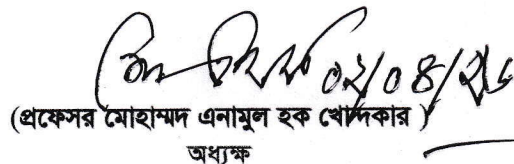 ০২/০৪/২৬
(প্রফেসর মোহাম্মদ এনামুল হক খোন্দকার )
অধ্যক্ষ